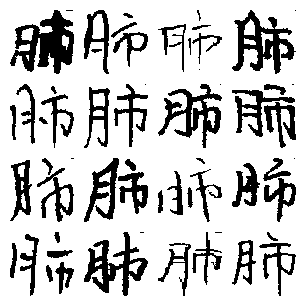 肺肺肺肺
肺肺肺肺
肺肺肺肺
肺肺肺肺